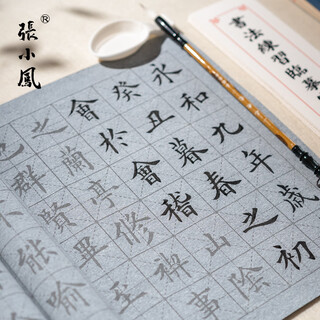 張小鳳®
書法練習臨摹
永和九年歲
癸丑暮春之初
會於會稽山陰
之蘭亭修禊事
也群賢畢至
能喻